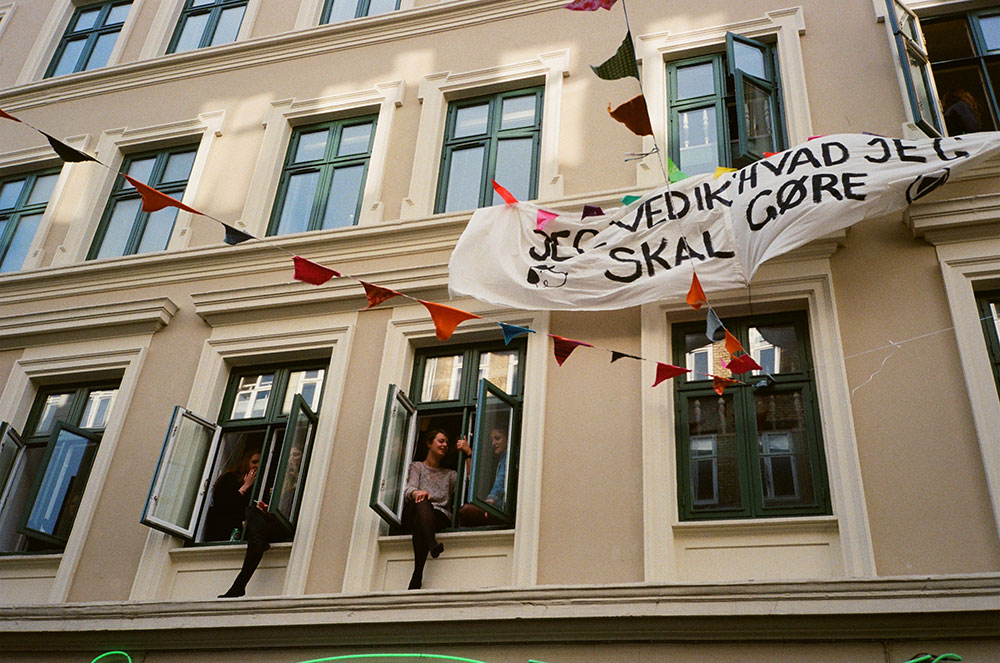 JEG VED IK' HVAD JEG
SKAL GØRE